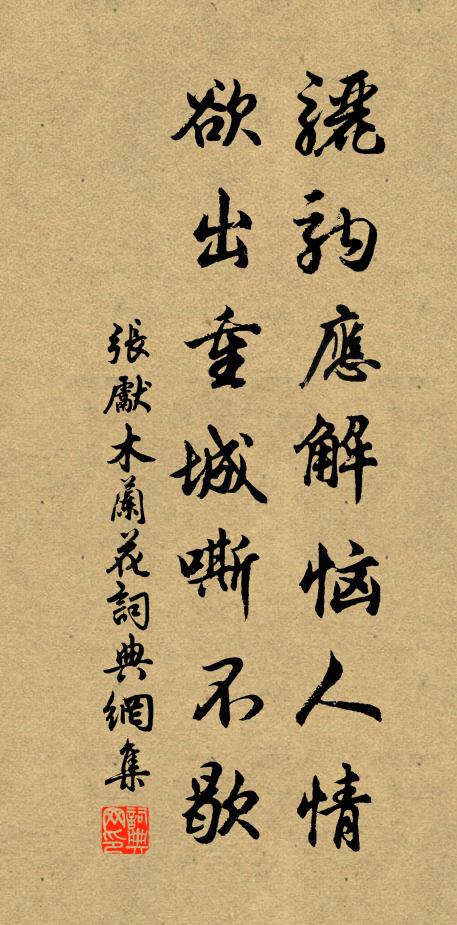 驪駒應解恼人情
欲出重城嘶不歇
張獻木蘭花詞典網集
詞典网印